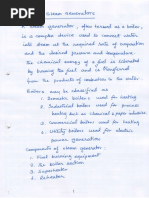 Steam Generators
A steam generator, often known as a boiler
is a complex device used to convert water
into steam at the required rate of evaporation
and the desired pressure and temperature.
The chemical energy of a fuel is liberated
by burning the fuel and is transferred
from the products of combustion to the water.
Boilers may be classified as
1. Domestic boilers used for heating
2. Industrial boilers used for process
heating such as chemical & paper industries
3. Commercial boilers used for heating
4. Utility boilers used for electric
power generation
Components of steam generator
1. Fuel burning equipment
2. The boiler
3. Superheater
1